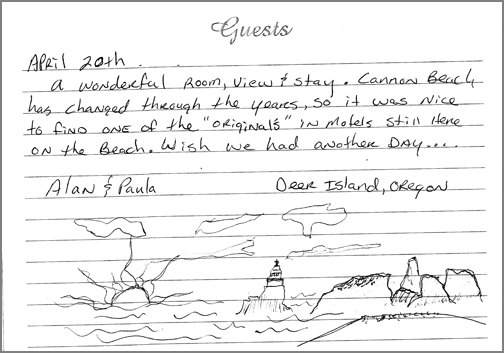 Guests
April 20th.
A wonderful Room, View & Stay. Cannon Beach,
has changed through the years, so it was nice
to find one of the "originals" in motels still here
on the Beach. Wish we had another DAY....
Alan & Paula Deer Island, Oregon